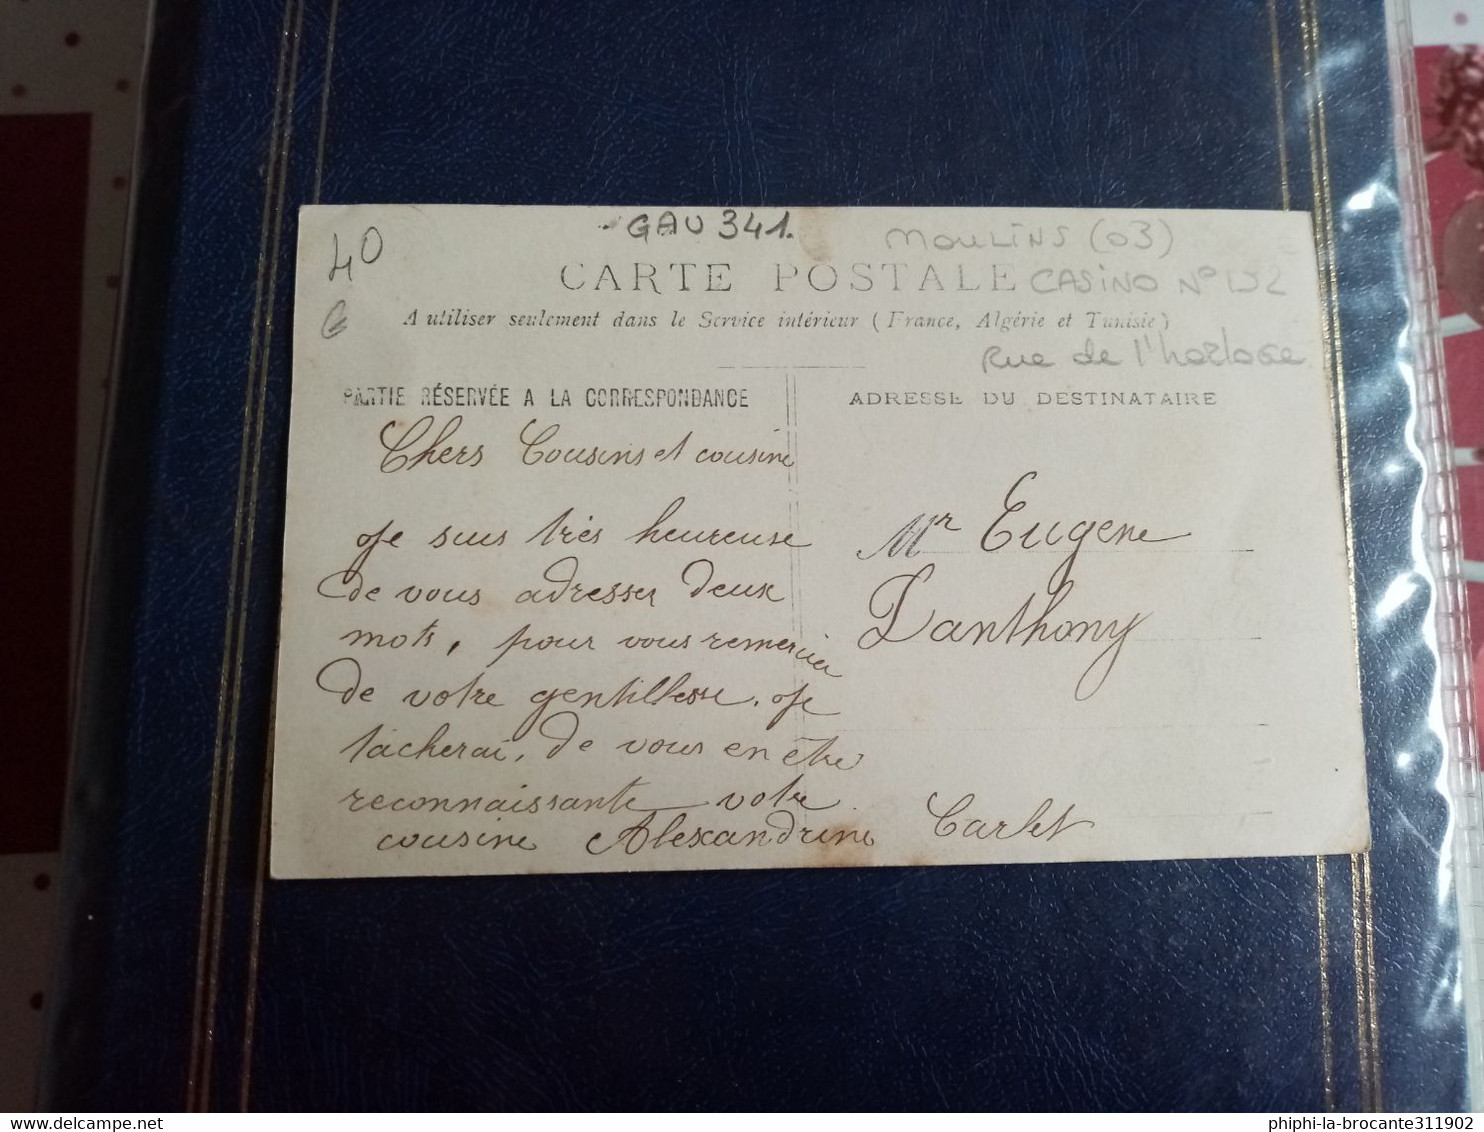 40
GAU 341.
MOULINS (03)
CARTE POSTALE
CASINO N° 152
A utiliser seulement dans le Service intérieur (France, Algérie et Tunisie)
Rue de l'horloge
PARTIE RÉSERVÉE A LA CORRESPONDANCE
ADRESSE DU DESTINATAIRE
Chers Cousins et cousine
Je suis très heureuse
de vous adresser deux
mots, pour vous remercier
de votre gentillesse. Je
tâcherai, de vous en être
reconnaissante votre
cousine Alexandrine Carlet
Mr Eugene
Danthony
phiphi-la-brocante311902